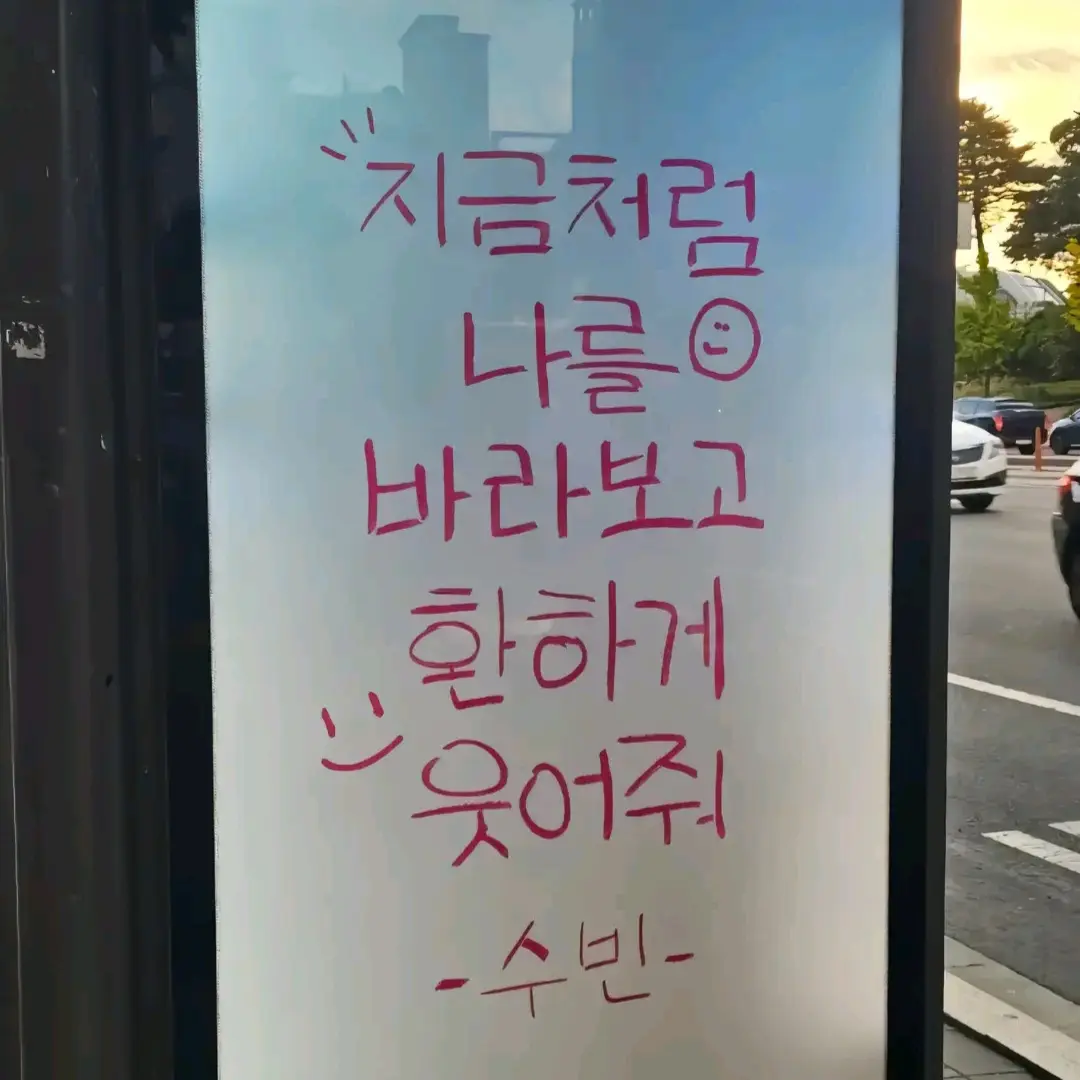 지금처럼
나를
바라보고
환하게
웃어줘
-수빈-